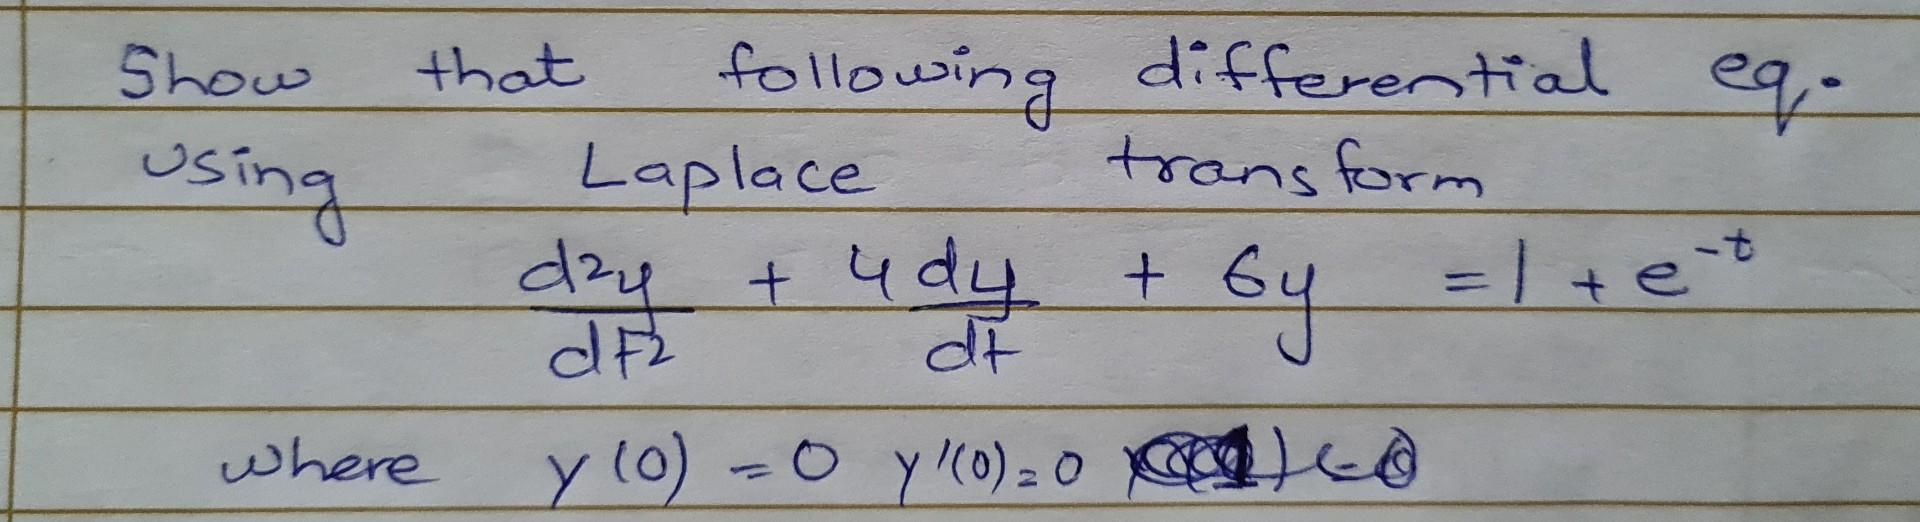 Show that following differential eq.
Using Laplace transform
d2y/dt2 + 4 dy/dt + 6y = 1 + e^-t
where y(0) = 0 y'(0) = 0